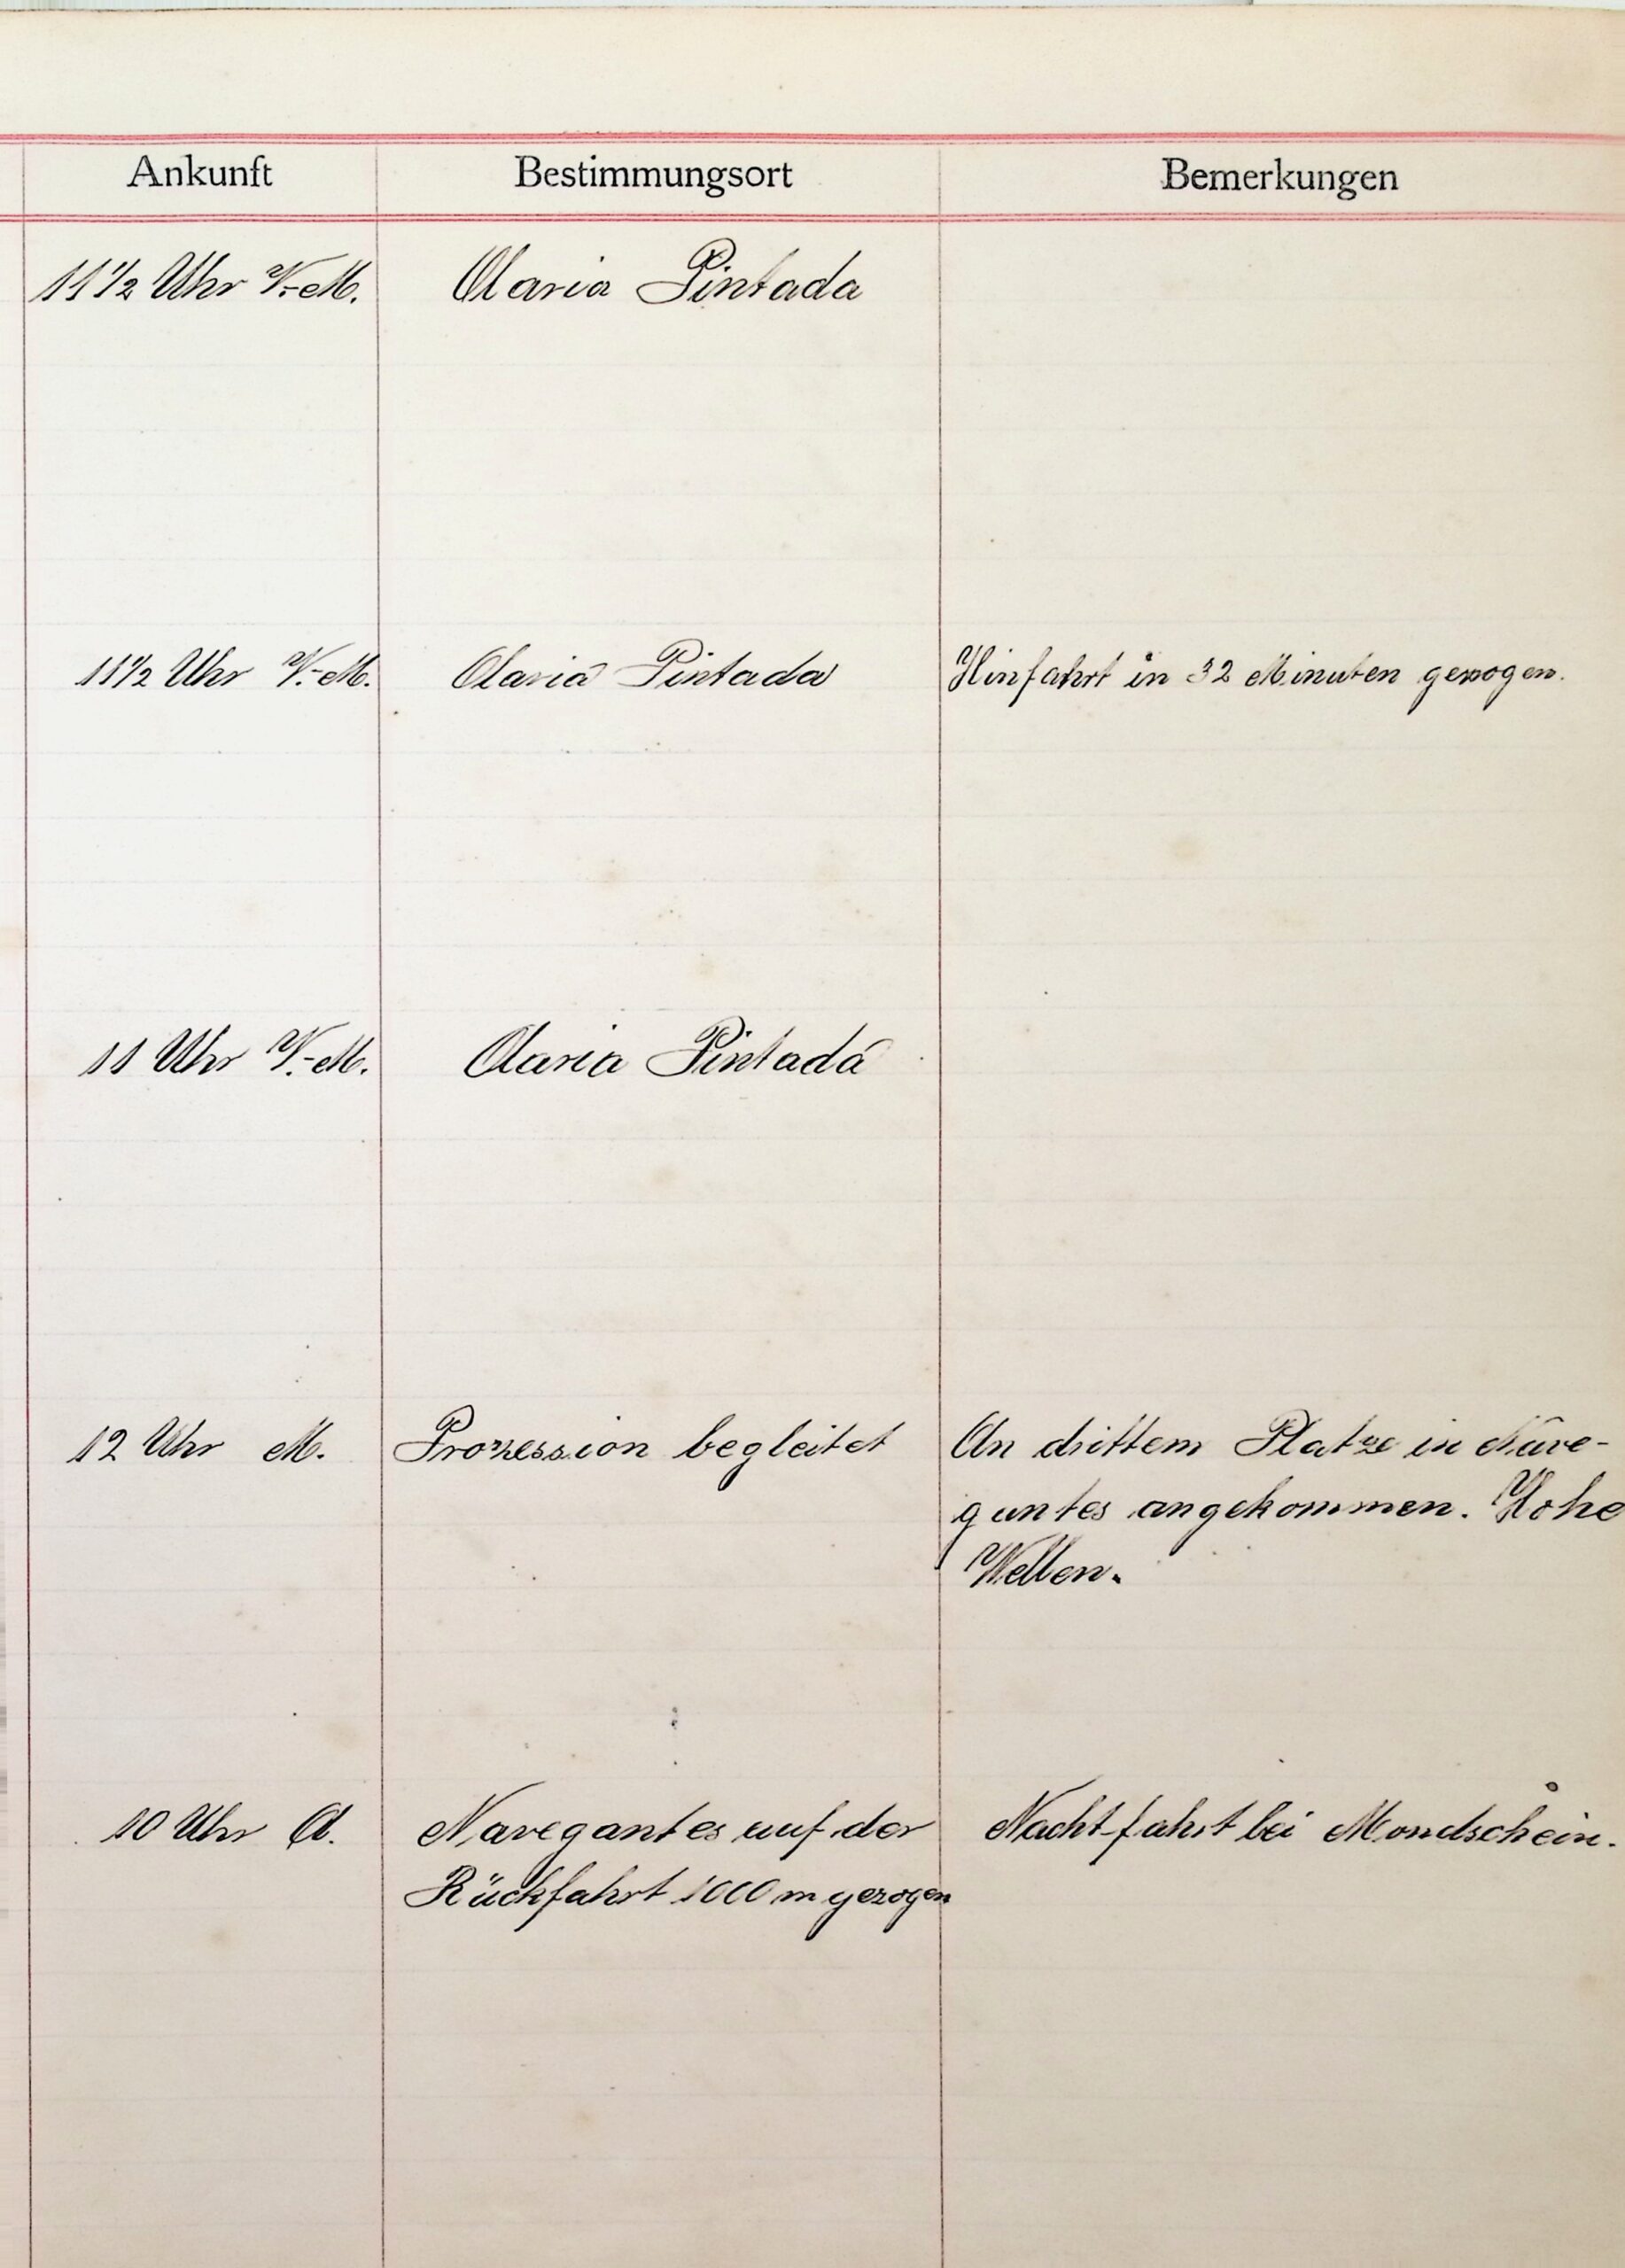 Ankunft Bestimmungsort Bemerkungen
11 1/2 Uhr V.-M. Olaria Pintada
11 1/2 Uhr V.-M. Olaria Pintada Hinfahrt in 32 Minuten gezogen.
11 Uhr V.-M. Olaria Pintada
12 Uhr M. Prozession begleitet An drittem Platze in Nave-
gantes angekommen. Hohe
Wellen.
10 Uhr A. Navegantes auf der Nachtfahrt bei Mondschein.
Rückfahrt 1000 m gezogen